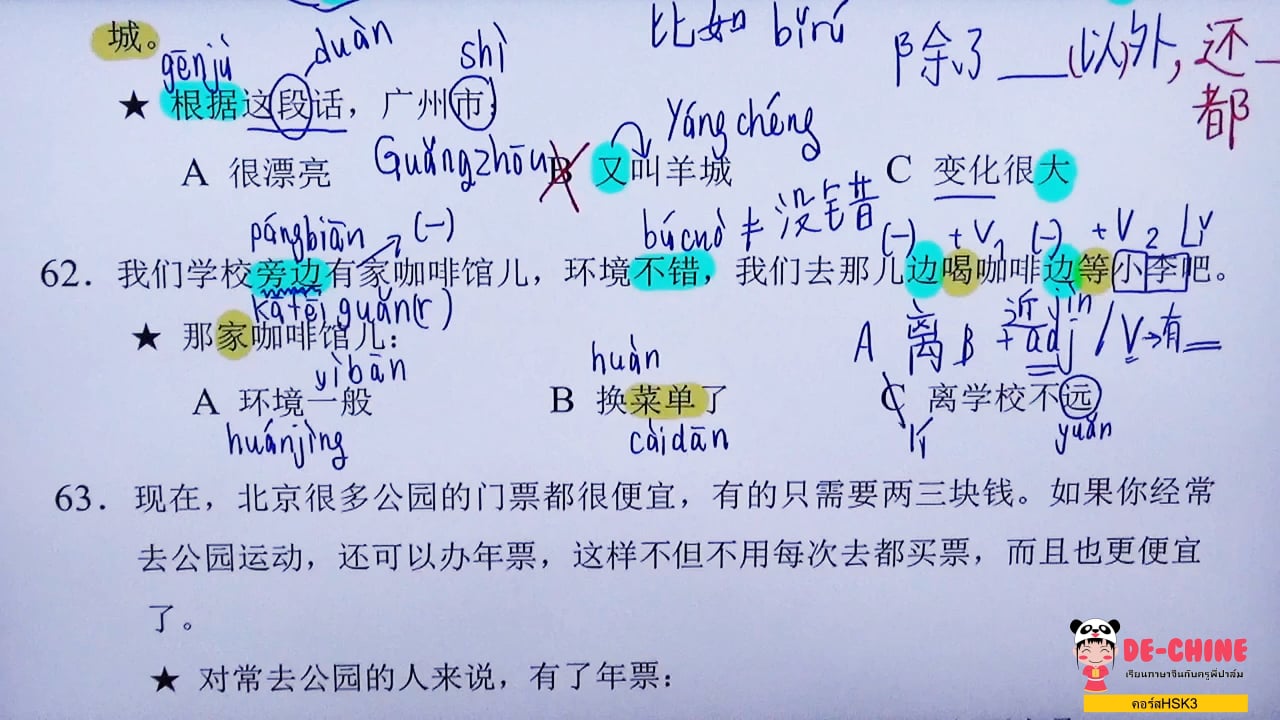 城。
比如 bǐrú
除了 ___(以)外,还_
都
gēnjù
duàn
shì
★ 根据这段话，广州市：
Guǎngzhōu
Yáng chéng
A 很漂亮 B 又叫羊城 C 变化很大
pángbiān (一)
búcuò ≠ 没错
(一) + V1 (一) + V2 Lǐ
62. 我们学校旁边有家咖啡馆儿，环境不错，我们去那儿边喝咖啡边等小李吧。
kāfēi guǎn(r)
★ 那家咖啡馆儿：
A 离 B 近 jìn + adj / V→有__
yìbān
huàn
A 环境一般 B 换菜单了 C 离学校不远
huánjìng
càidān
lí
yuǎn
63. 现在，北京很多公园的门票都很便宜，有的只需要两三块钱。如果你经常
去公园运动，还可以办年票，这样不但不用每次去都买票，而且也更便宜
了。
★ 对常去公园的人来说，有了年票：
DE-CHINE
เรียนภาษาจีนกับครูพี่ปาล์ม
คอร์สHSK3